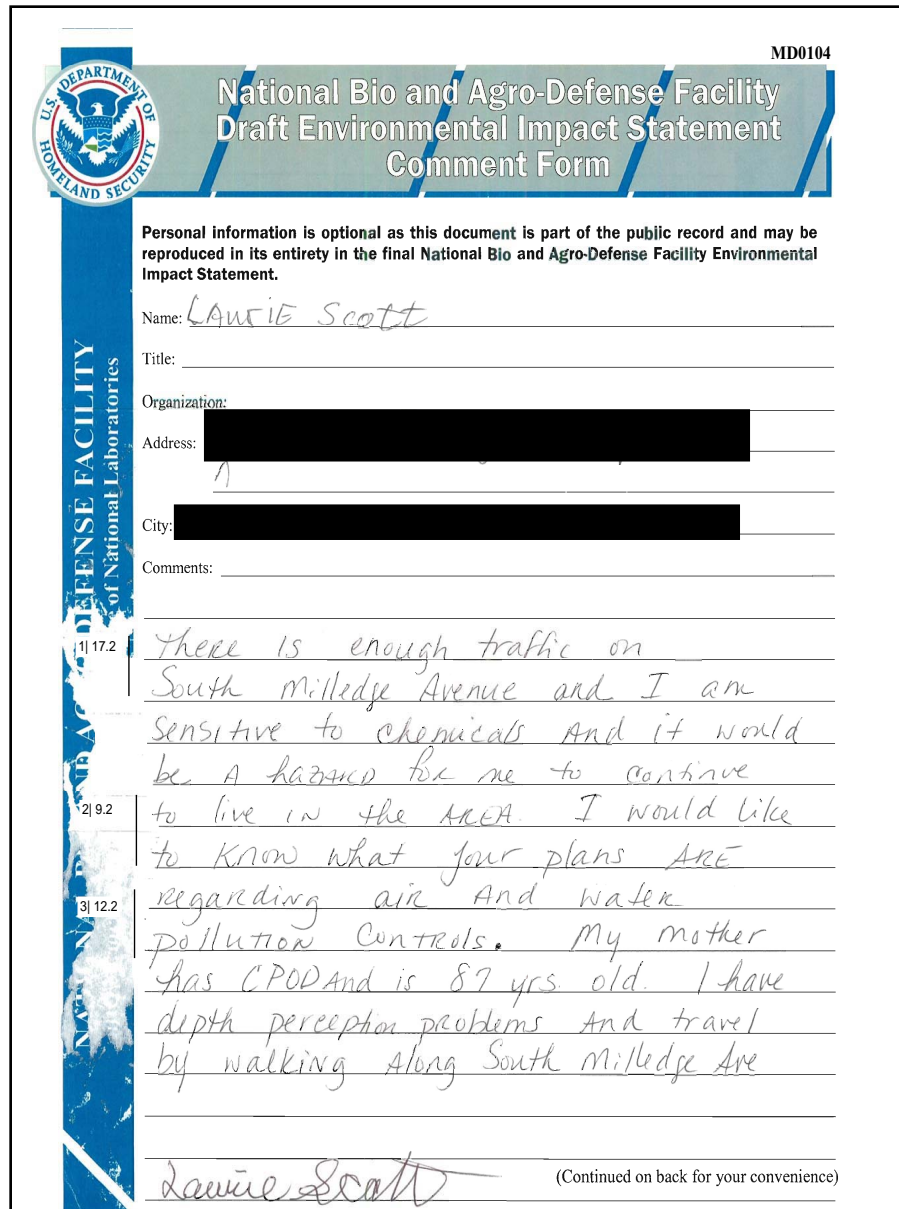 MD0104
U.S. DEPARTMENT OF
HOMELAND SECURITY
National Bio and Agro-Defense Facility
Draft Environmental Impact Statement
Comment Form
Personal information is optional as this document is part of the public record and may be
reproduced in its entirety in the final National Bio and Agro-Defense Facility Environmental
Impact Statement.
Name: LAURIE Scott
Title:
Organization:
Address:
City:
Comments:
DEFENSE FACILITY
of National Laboratories
1| 17.2
There is enough traffic on
South Milledge Avenue and I am
sensitive to chemicals And it would
be A hazard for me to continue
2| 9.2
to live in the AREA. I would like
to know what your plans ARE
3| 12.2
regarding air And water
pollution Controls. My mother
has CPOD And is 87 yrs. old. I have
depth perception problems And travel
by walking Along South Milledge Ave
Laurie Scott
(Continued on back for your convenience)